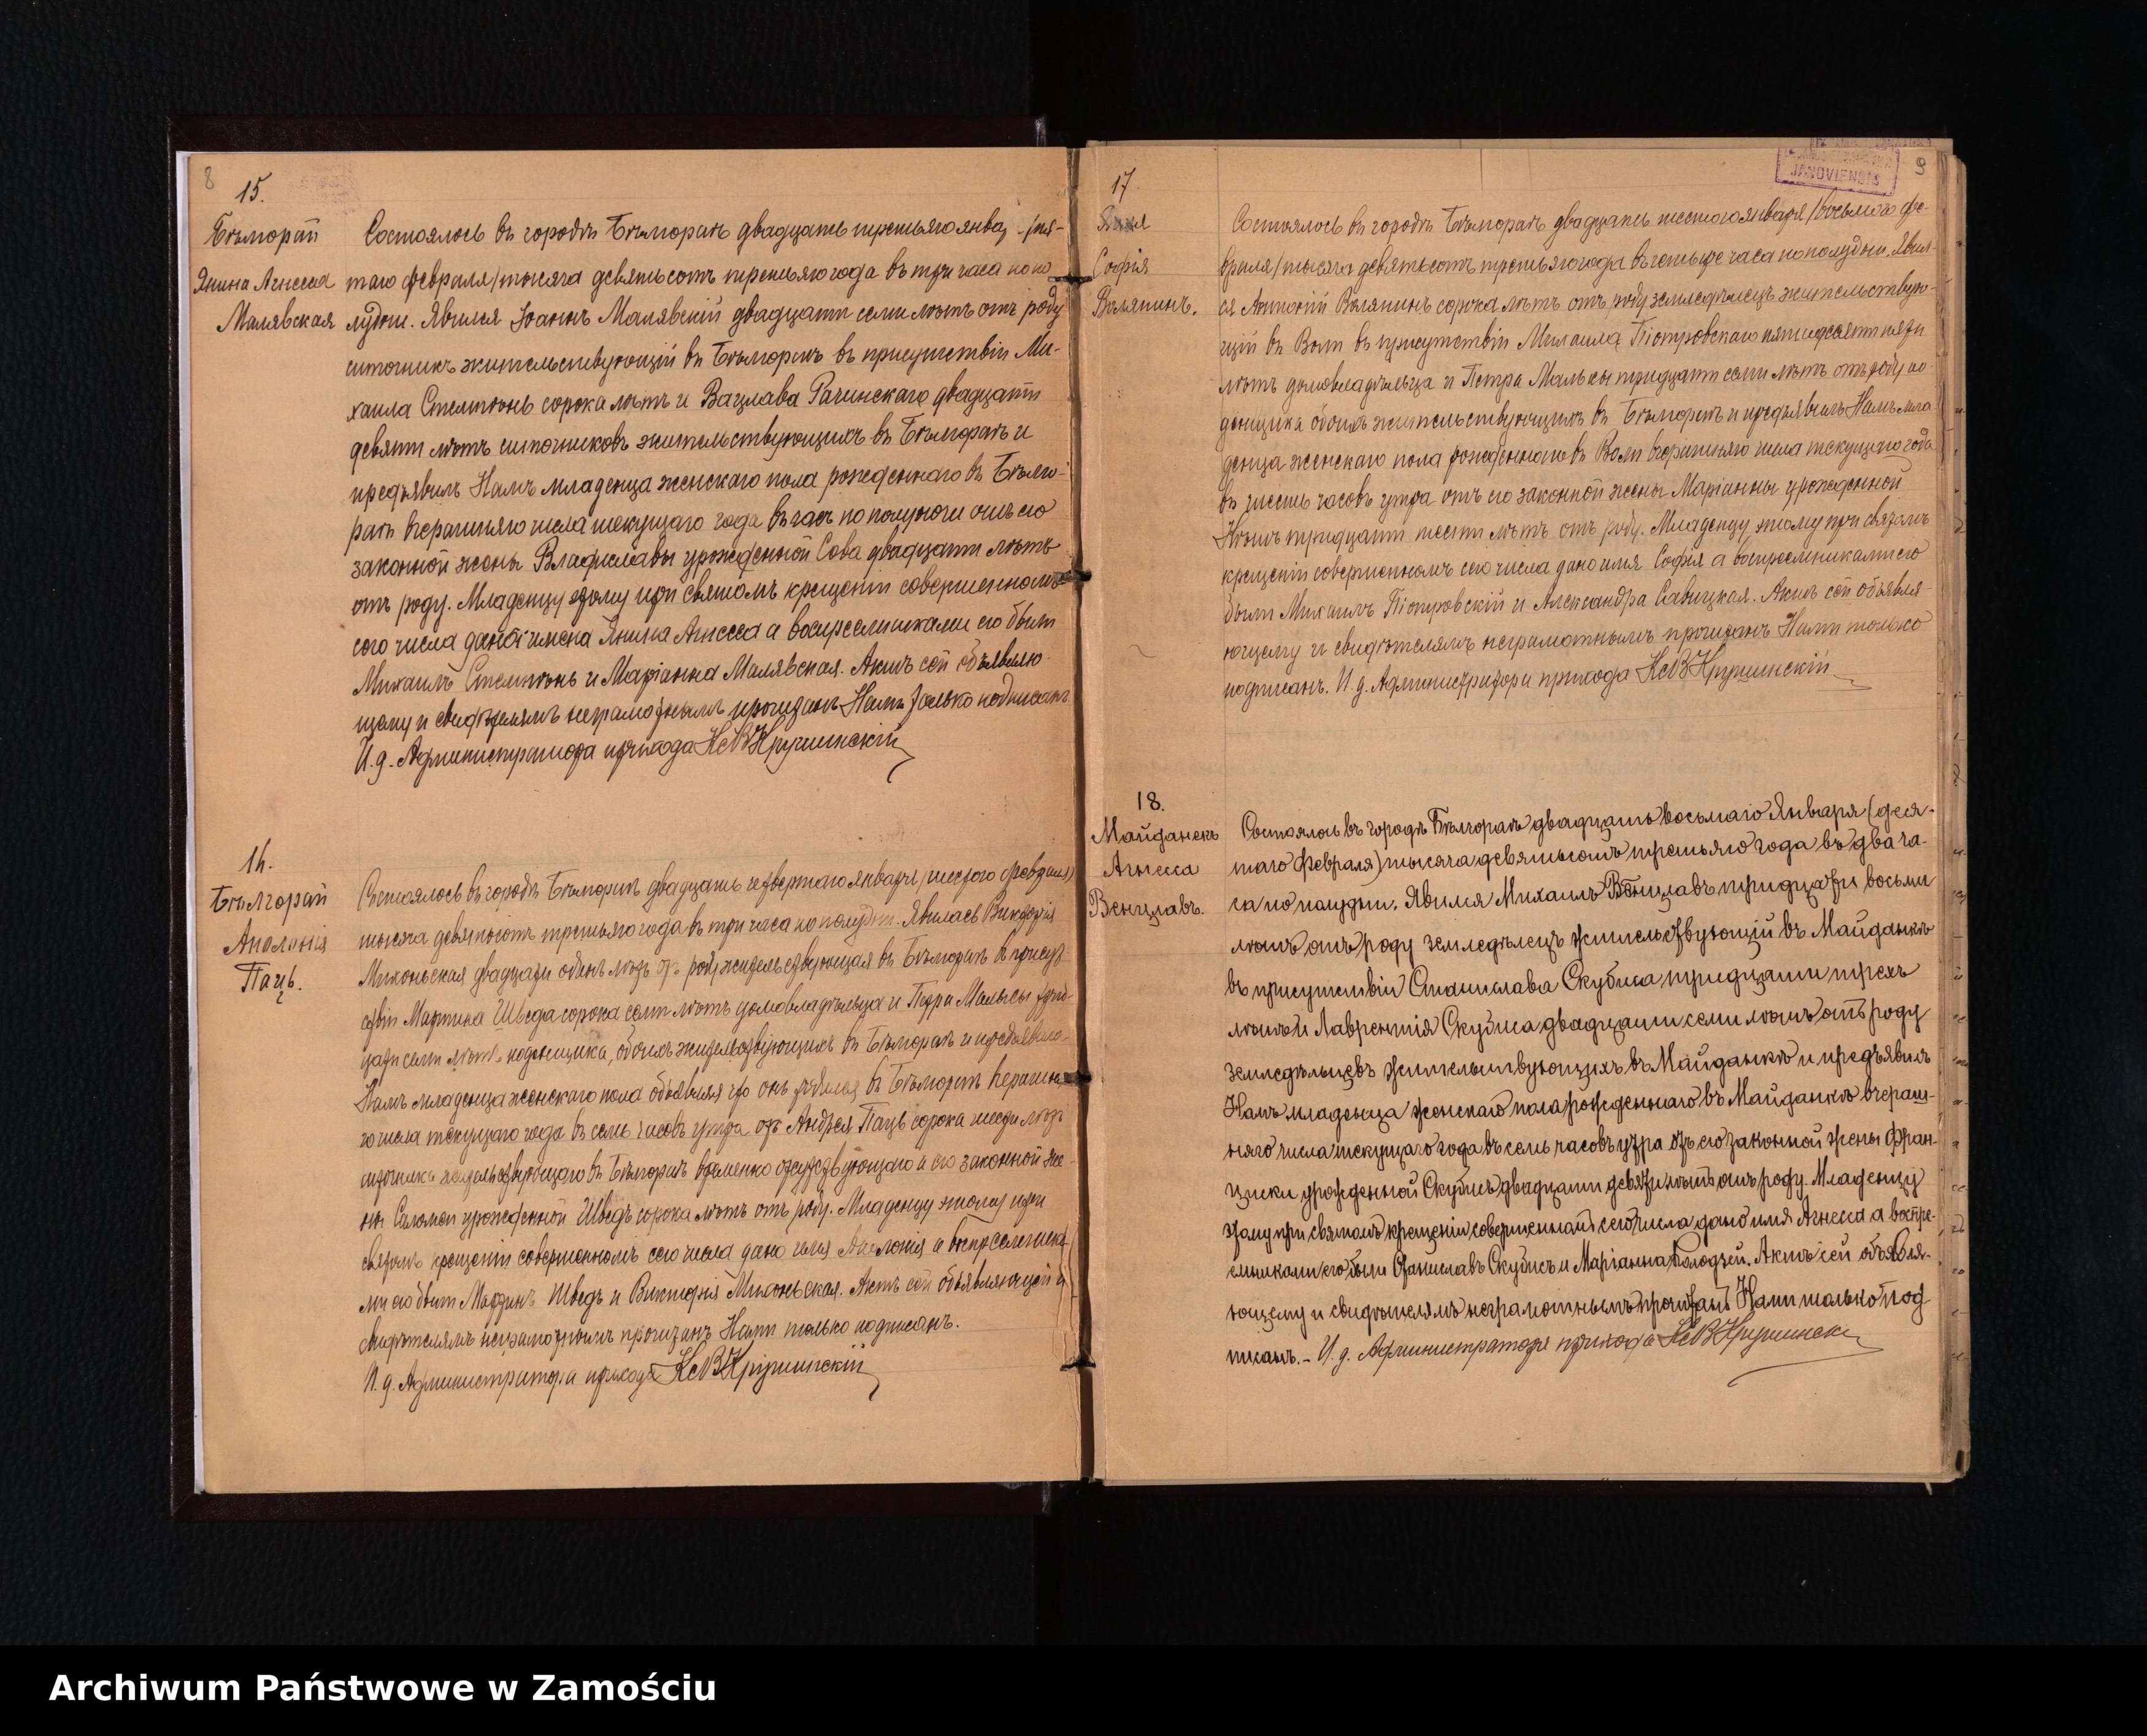 8
15.
Бѣлгорай
Янина Агнесса
Малявская
Состоялось въ городѣ Бѣлгораѣ двадцать третьяго янва /пя-
таго февраля/ тысяча девятьсотъ третьяго года въ три часа по по
лудни. Явился Іоаннъ Малявскій двадцати семи лѣтъ отъ роду
ситочникъ жительствующій въ Бѣлгораѣ въ присутствіи Ми-
хаила сорока лѣтъ и Вацлава Рачинскаго двадцати
девяти лѣтъ ситочниковъ жительствующихъ въ Бѣлгораѣ и
предъявилъ Намъ младенца женскаго пола рожденнаго въ Бѣлго-
раѣ вчерашняго числа текущаго года въ часъ по полуночи отъ его
законной жены Владиславы урожденной Сова двадцати лѣтъ
отъ роду. Младенцу этому при святомъ крещеніи совершенномъ
сего числа даны имена Янина Агнесса а воспреемниками его были
Михаилъ и Маріанна Малявская. Актъ сей объявляю
щему и свидѣтелямъ неграмотнымъ прочитанъ Нами только подписанъ
И. д. Администратора прихода Кс В Крушинскій
16.
Бѣлгорай
Аполонія
Паць.
Состоялось въ городѣ Бѣлгораѣ двадцать четвертаго января /шестого февраля/
тысяча девятьсотъ третьяго года въ три часа по полудни. Явилась Викторія
двадцати одинъ лѣтъ отъ роду жительствующая въ Бѣлгораѣ въ присут-
ствіи Мартина Шведа сорока семи лѣтъ домовладѣльца и Петра Мальсы трид-
цати семи лѣтъ поденщика, обоихъ жительствующихъ въ Бѣлгораѣ и предъявила
Намъ младенца женскаго пола объявляя что онъ родился въ Бѣлгораѣ вчерашня-
го числа текущаго года въ семь часовъ утра отъ Андрея Паць сорока шести лѣтъ
ситочника жительствующаго въ Бѣлгораѣ временно отсутствующаго и его законной же-
ны Саломеи урожденной Шведъ сорока лѣтъ отъ роду. Младенцу этому при
святомъ крещеніи совершенномъ сего числа дано имя Аполонія а воспреемника
ми его были Мартинъ Шведъ и Викторія. Актъ сей объявляющей и
свидѣтелямъ неграмотнымъ прочитанъ Нами только подписанъ.
И. д. Администратора прихода Кс В Крушинскій
JANOVIENSIS
9
17.
Софія
Волянинъ.
Состоялось въ городѣ Бѣлгораѣ двадцать шестого января /восьмого фе-
враля/ тысяча девятьсотъ третьяго года въ четыре часа по полудни. Явил-
ся Антоній Волянинъ сорока лѣтъ отъ роду земледѣлецъ жительствую-
щій въ Воли въ присутствіи Михаила Піотровскаго пятидесяти пяти
лѣтъ домовладѣльца и Петра Мальсы тридцати семи лѣтъ отъ роду по-
денщика обоихъ жительствующихъ въ Бѣлгораѣ и предъявилъ Намъ мла
денца женскаго пола рожденнаго въ Воли вчерашняго числа текущаго года
въ шесть часовъ утра отъ его законной жены Маріанны урожденной
тридцати шести лѣтъ отъ роду. Младенцу этому при святомъ
крещеніи совершенномъ сего числа дано имя Софія а воспреемниками его
были Михаилъ Піотровскій и Александра Савицкая. Актъ сей объявля-
ющему и свидѣтелямъ неграмотнымъ прочитанъ Нами только
подписанъ. И. д. Администратора прихода Кс В Крушинскій
18.
Майданекъ
Агнесса
Венцлавъ.
Состоялось въ городѣ Бѣлгораѣ двадцать восьмаго Января (деся-
таго Февраля) тысяча девятьсотъ третьяго года въ два ча-
са по полудни. Явился Михаилъ Венцлавъ тридцати восьми
лѣтъ отъ роду земледѣлецъ жительствующій въ Майданкѣ
въ присутствіи Станислава Скубиса тридцати трехъ
лѣтъ и Лаврентія Скубиса двадцати семи лѣтъ отъ роду
земледѣльцевъ жительствующихъ въ Майданкѣ и предъявилъ
Намъ младенца женскаго пола рожденнаго въ Майданкѣ вчераш-
няго числа текущаго года въ семь часовъ утра отъ его законной жены Фран-
цишки урожденной Скубисъ двадцати девяти лѣтъ отъ роду. Младенцу
этому при святомъ крещеніи совершенномъ сего числа дано имя Агнесса а воспре-
емниками его были Станиславъ Скубисъ и Маріанна Колодзей. Актъ сей объявля-
ющему и свидѣтелямъ неграмотнымъ прочитанъ Нами только под
писанъ. - И. д. Администратора прихода Кс В Крушински
Archiwum Państwowe w Zamościu